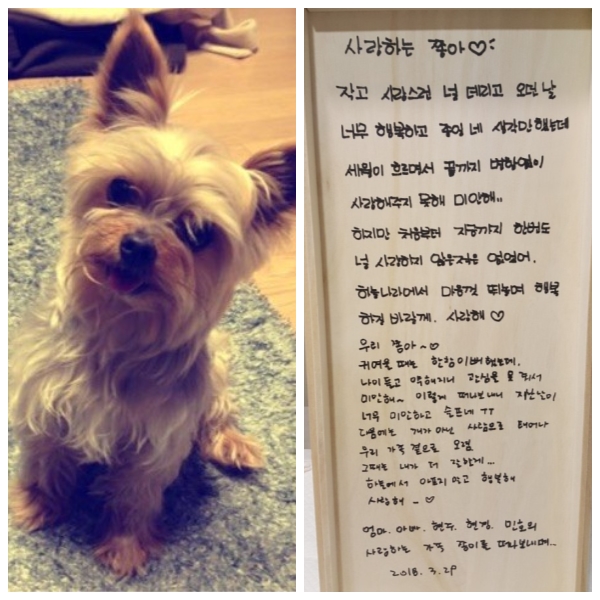 사랑하는 쫑아♡
작고 사랑스런 널 데리고 오던 날
너무 행복하고 종일 네 생각만 했는데
세월이 흐르면서 끝까지 변함없이
사랑해주지 못해 미안해..
하지만 처음부터 지금까지 한번도
널 사랑하지 않은적은 없었어.
하늘나라에서 마음껏 뛰놀며 행복
하길 바랄께. 사랑해 ♡
우리 쫑아~♡
귀여울 때는 한참 이뻐했는데.
나이들고 약해지니 관심을 못 줘서
미안해~ 이렇게 떠나보내니 지난날이
너무 미안하고 슬프네 ㅠㅠ
다음에는 개가 아닌 사람으로 태어나
우리 가족 곁으로 오렴
그때는 내가 더 잘할게...
하늘에서 아프지 말고 행복해
사랑해 _ ♡
엄마. 아빠. 현주. 현경. 민호의
사랑하는 가족 쫑이를 떠나보내며...
2018. 3. 29